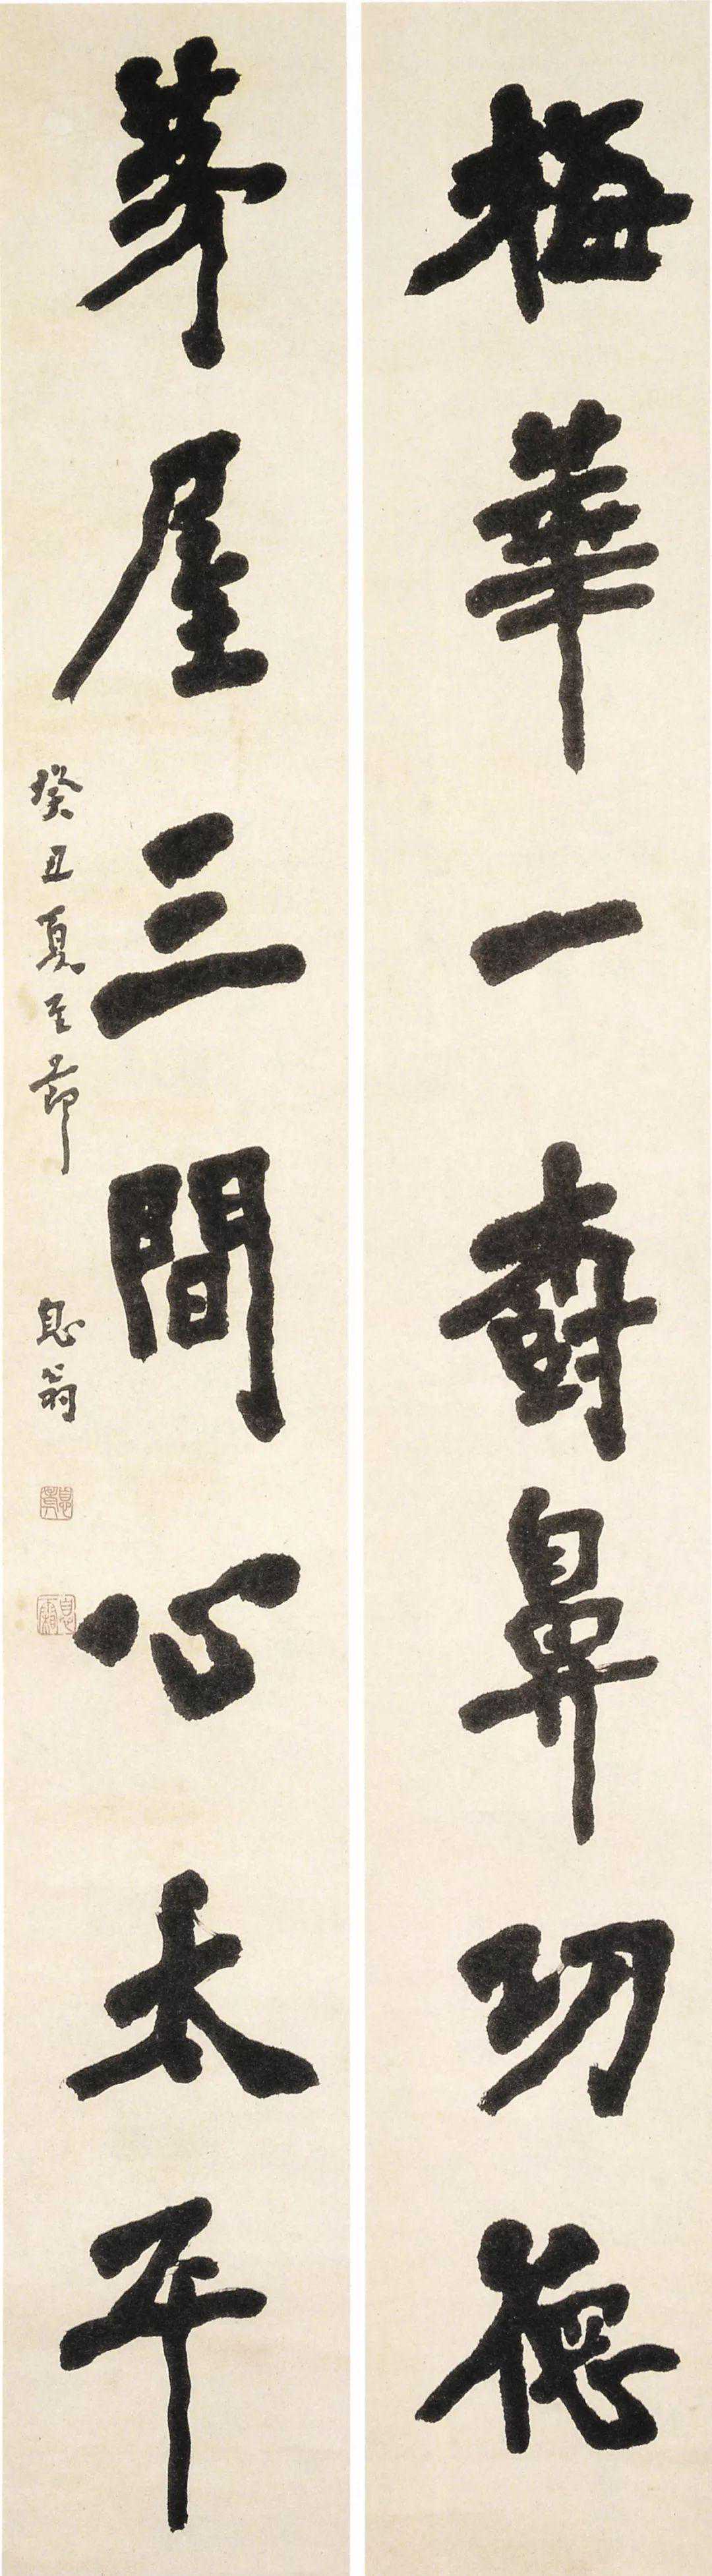 梅華一樹鼻功德
茅屋三間心太平
癸丑夏至節 息翁
息霜